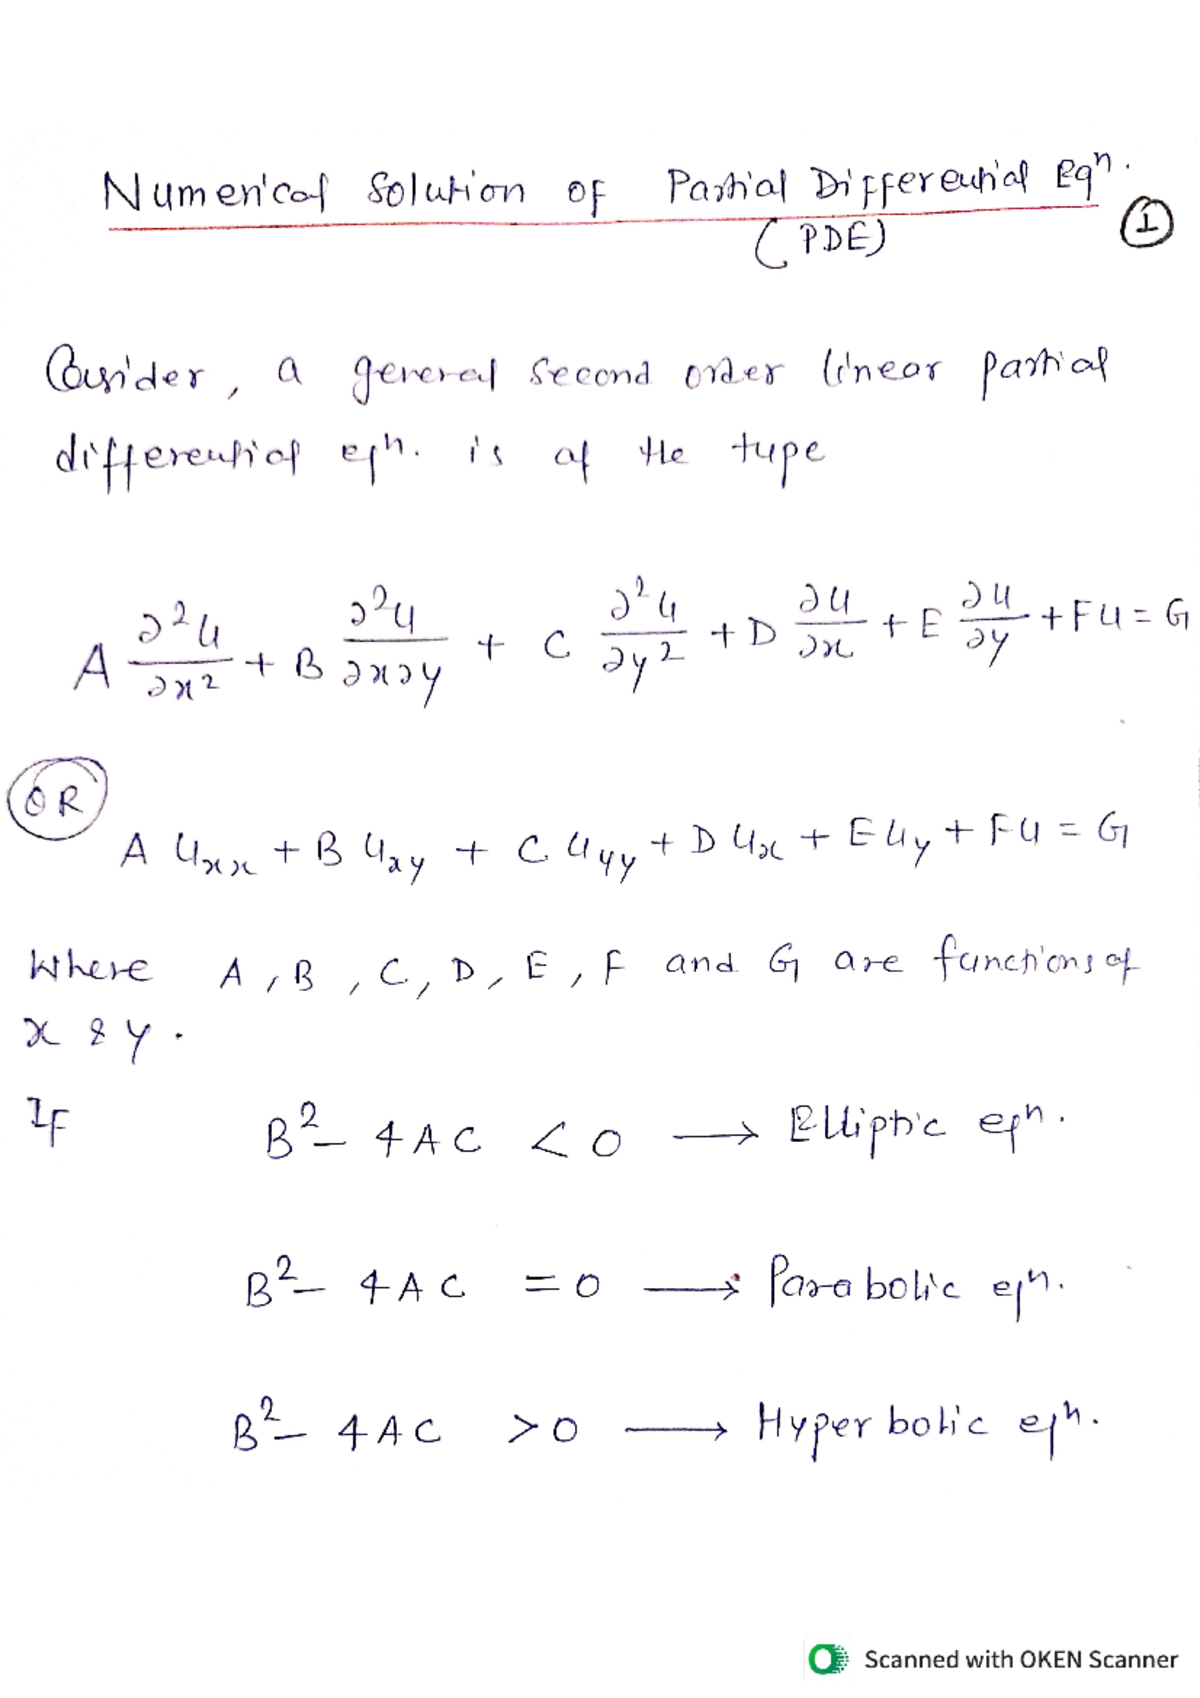 Numerical Solution of Partial Differential Eqn.
(PDE)
1
Consider, a general second order linear partial
differential eqn. is of the type
A ∂²u/∂x² + B ∂²u/∂x∂y + C ∂²u/∂y² + D ∂u/∂x + E ∂u/∂y + Fu = G
OR
A uxx + B uxy + C uyy + D ux + E uy + Fu = G
Where A, B, C, D, E, F and G are functions of
x & y.
If B² - 4AC < 0 → Elliptic eqn.
B² - 4AC = 0 → Parabolic eqn.
B² - 4AC > 0 → Hyperbolic eqn.
Scanned with OKEN Scanner